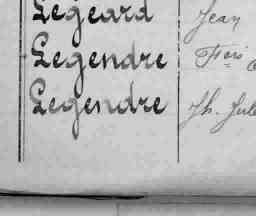 Legeard Jean
Legendre Fois
Legendre Jh. Jule